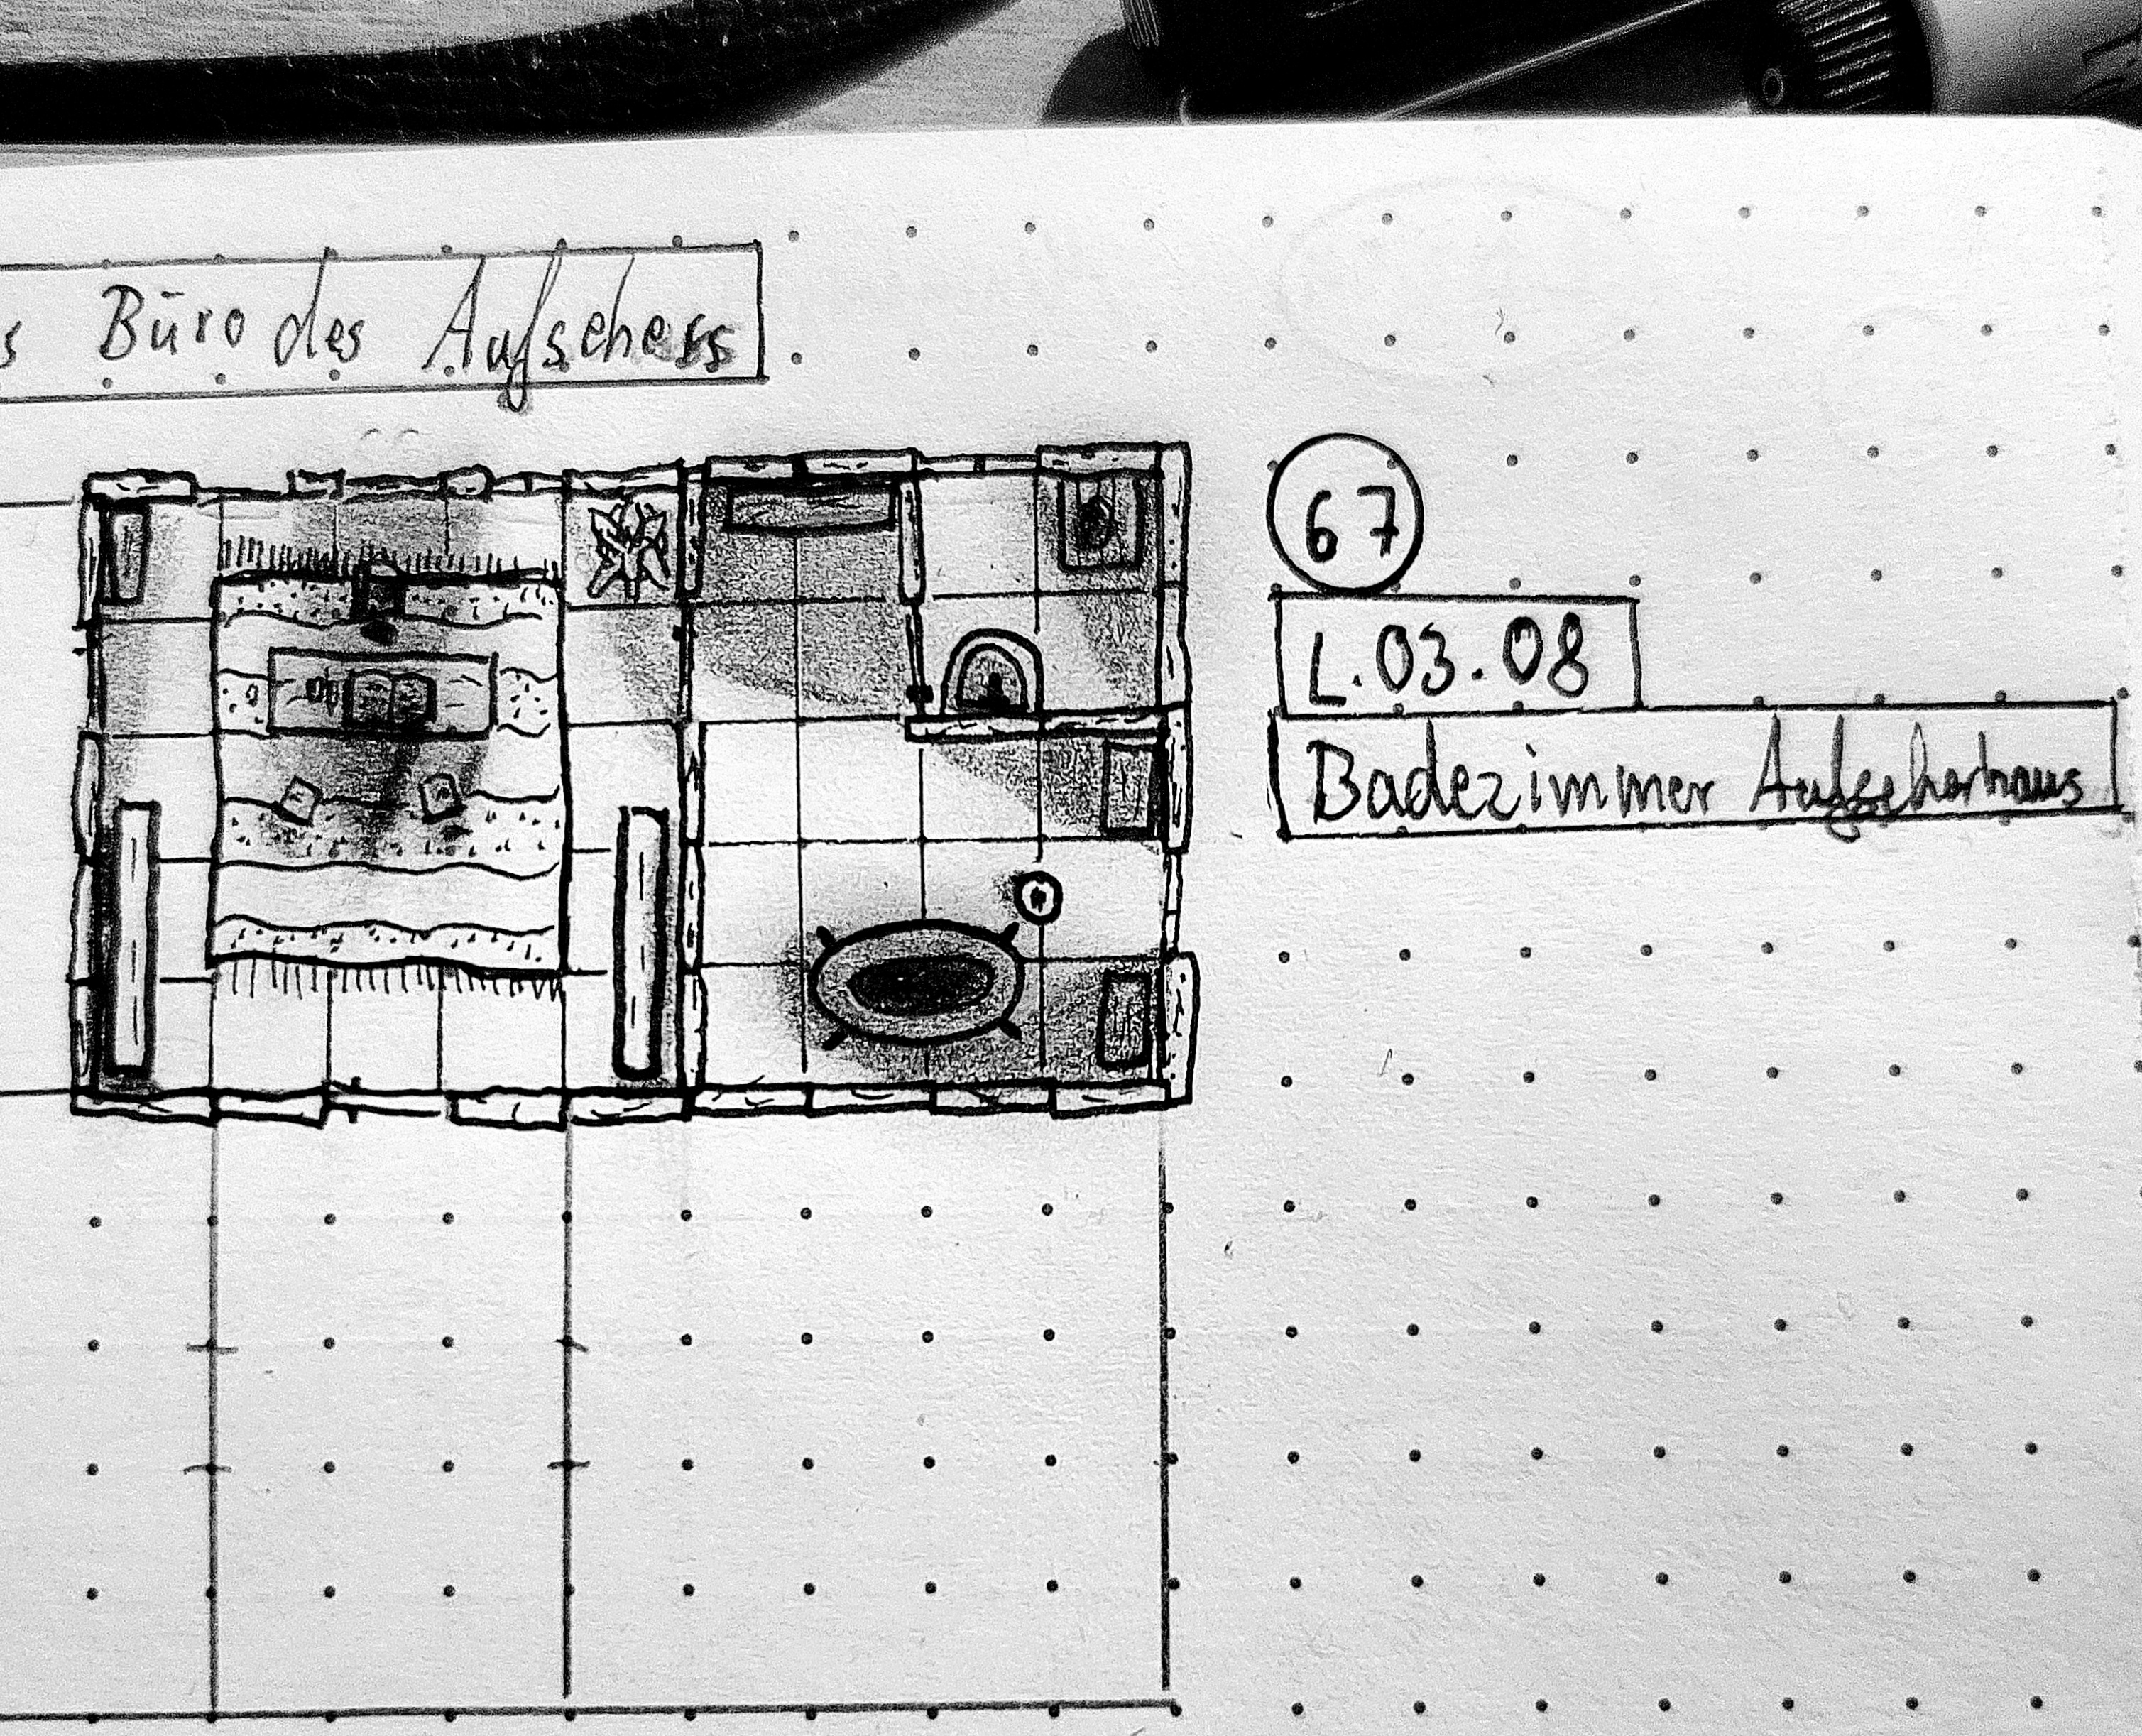 s Büro des Aufsehers
67
L.03.08
Badezimmer Aufseherhaus